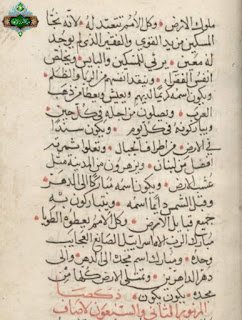 ملوك الارض • وكل الامم تتعبد له • لانه نجا
المسكين من يد القوي والفقير الذي لم يوجد
له معين • يرفي المسكين والبايس • ويخلص
انفس الفقرا •
ويكون اسمه كريما لديهم • ويعيش ويعطا من ذهب
العرب • ويصلون من اجله في كل حين
ويباركونه في كل يوم • ويكون سندا
في الارض • على اطراف الجبال • وتعلوا ثمرته
افضل من لبنان • ويزهرون من المدينة مثل
عشب الارض • ويكون اسمه مباركا الى الدهر
وقبل الشمس دايم اسمه • وتتبارك به
جميع قبايل الارض • وكل الامم يعطوه الطوبا •
مبارك الرب الاه اسراييل الصانع العجايب
وحده • ومبارك اسم مجده الى الدهر والى
دهر الداهرين • وتمتلي الارض كلها من
مجده يكون يكون •
المزمور الثاني والسبعون لاصاف